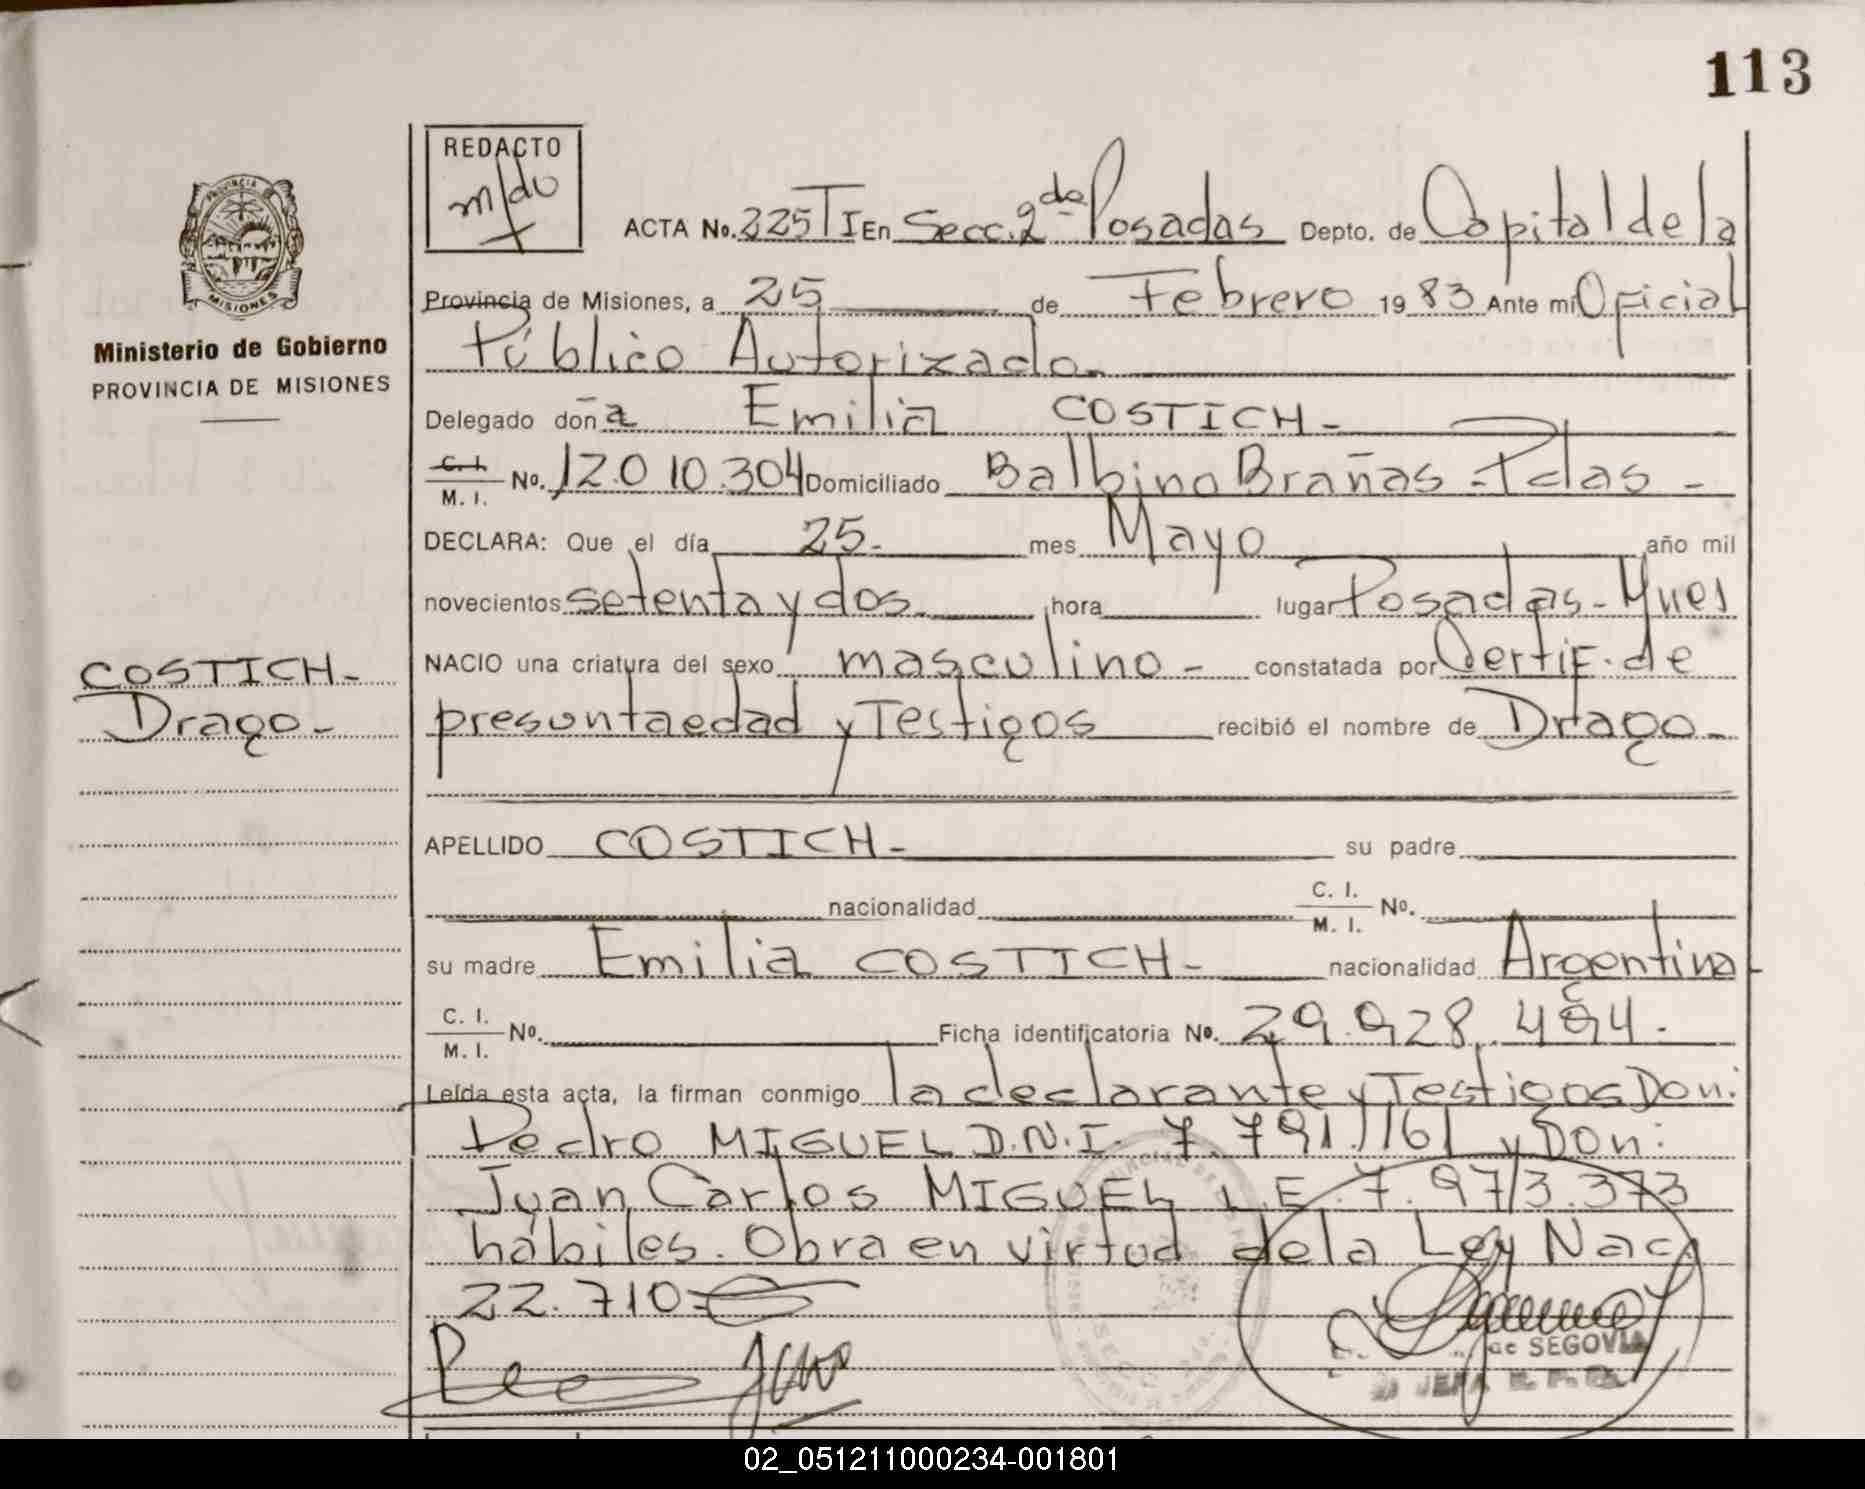 113
REDACTO
ACTA No. 225 TI En Secc. 2da Posadas Depto. de Capital de la
Provincia de Misiones, a 25 de Febrero 1983 Ante mí Oficial
Público Autorizado.
PROVINCIA
MISIONES
Ministerio de Gobierno
PROVINCIA DE MISIONES
Delegado doña Emilia COSTICH -
C. I. / M. I. No. 12.010.304 Domiciliado Balbino Brañas - Pdas -
DECLARA: Que el día 25. mes Mayo año mil
novecientos setenta y dos. hora lugar Posadas - Mnes
NACIO una criatura del sexo masculino - constatada por Certif. de
COSTICH -
Drago -
presunta edad y Testigos recibió el nombre de Drago -
APELLIDO COSTICH - su padre
nacionalidad C. I. / M. I. No.
su madre Emilia COSTICH - nacionalidad Argentina
C. I. / M. I. No. Ficha identificatoria No. 29.928.494.
Leída esta acta, la firman conmigo la declarante y Testigos Don:
Pedro MIGUEL D.N.I. 7.791.161 y Don:
Juan Carlos MIGUEL L.E. 7.973.373
hábiles. Obra en virtud de la Ley Nac.
22.710
de SEGOVIA
JEFA
02_051211000234-001801